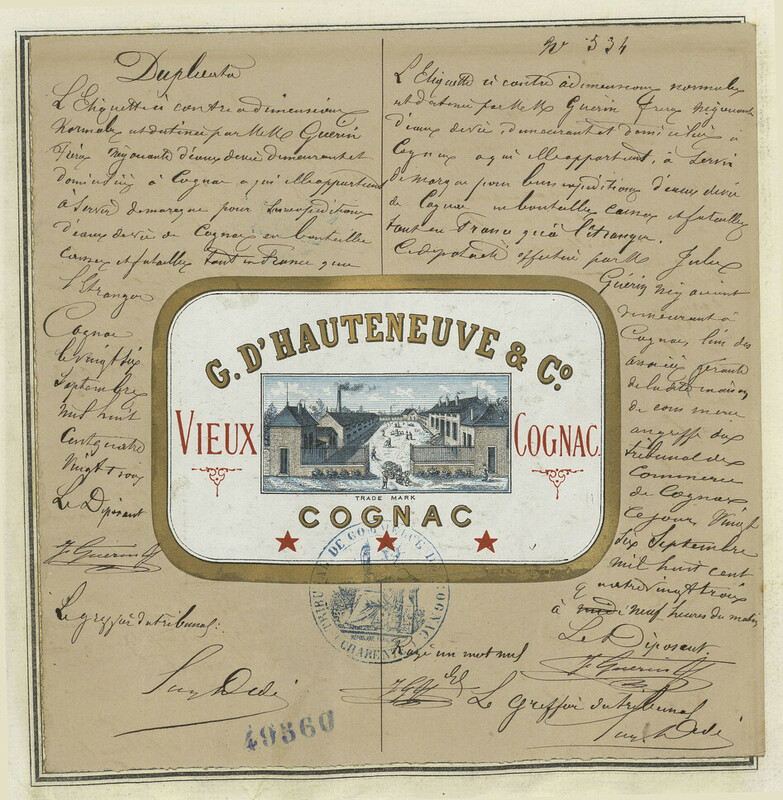 Duplicata
L'Etiquette ci contre a dimensions
Normales est destinée par MM Guérin
Frères Négociants d'eaux de vie demeurant et
domiciliés à Cognac a qui elle appartient
à Servir de marque pour les expéditions
d'eaux de vie de Cognac en bouteilles
caisses et futailles tant en France qu'a
l'Etranger
Cognac
le vingt six
Septembre
mil huit
cent quatre
vingt trois
Le Déposant
J. Guerin
Le greffier du tribunal:
49560
N° 534
L'Etiquette ci contre a dimensions normales
est destinée par MM Guérin frères négociants
d'eaux de vie, demeurant et domiciliés à
Cognac a qui elle appartient, à Servir
de marque pour leurs expéditions d'eaux de vie
de Cognac en bouteilles caisses et futailles
tant en France qu'à l'étranger.
Ce dépot a été effectué par M Jules
Guérin négociant
demeurant à
Cognac, l'un des
associés gérants
de la dite maison
de commerce
au greffe du
tribunal de
Commerce
de Cognac
ce jour Vingt
six Septembre
mil huit cent
quatre vingt trois
à neuf heures du matin
Le Déposant.
J. Guerin
Rayé un mot nul
Le greffier du tribunal
G. D'HAUTENEUVE & Co.
VIEUX COGNAC
TRADE MARK
COGNAC
TRIBUNAL DE COMMERCE DE COGNAC
CHARENTE